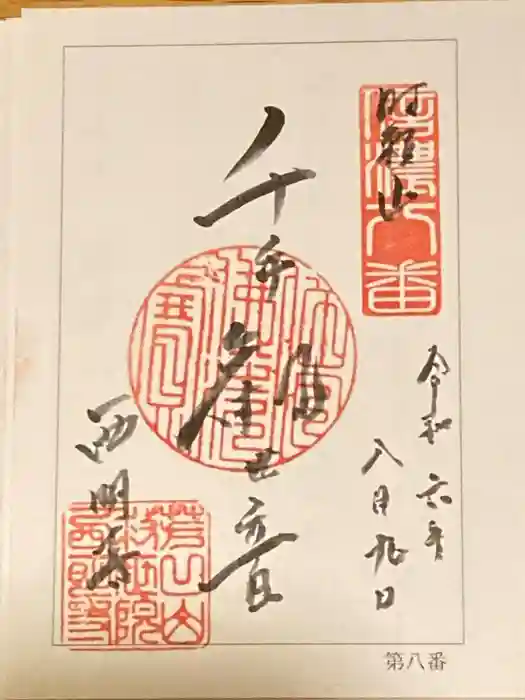 信濃八番
時頼山
令和六年
八月九日
千手観世音
西明寺
第八番